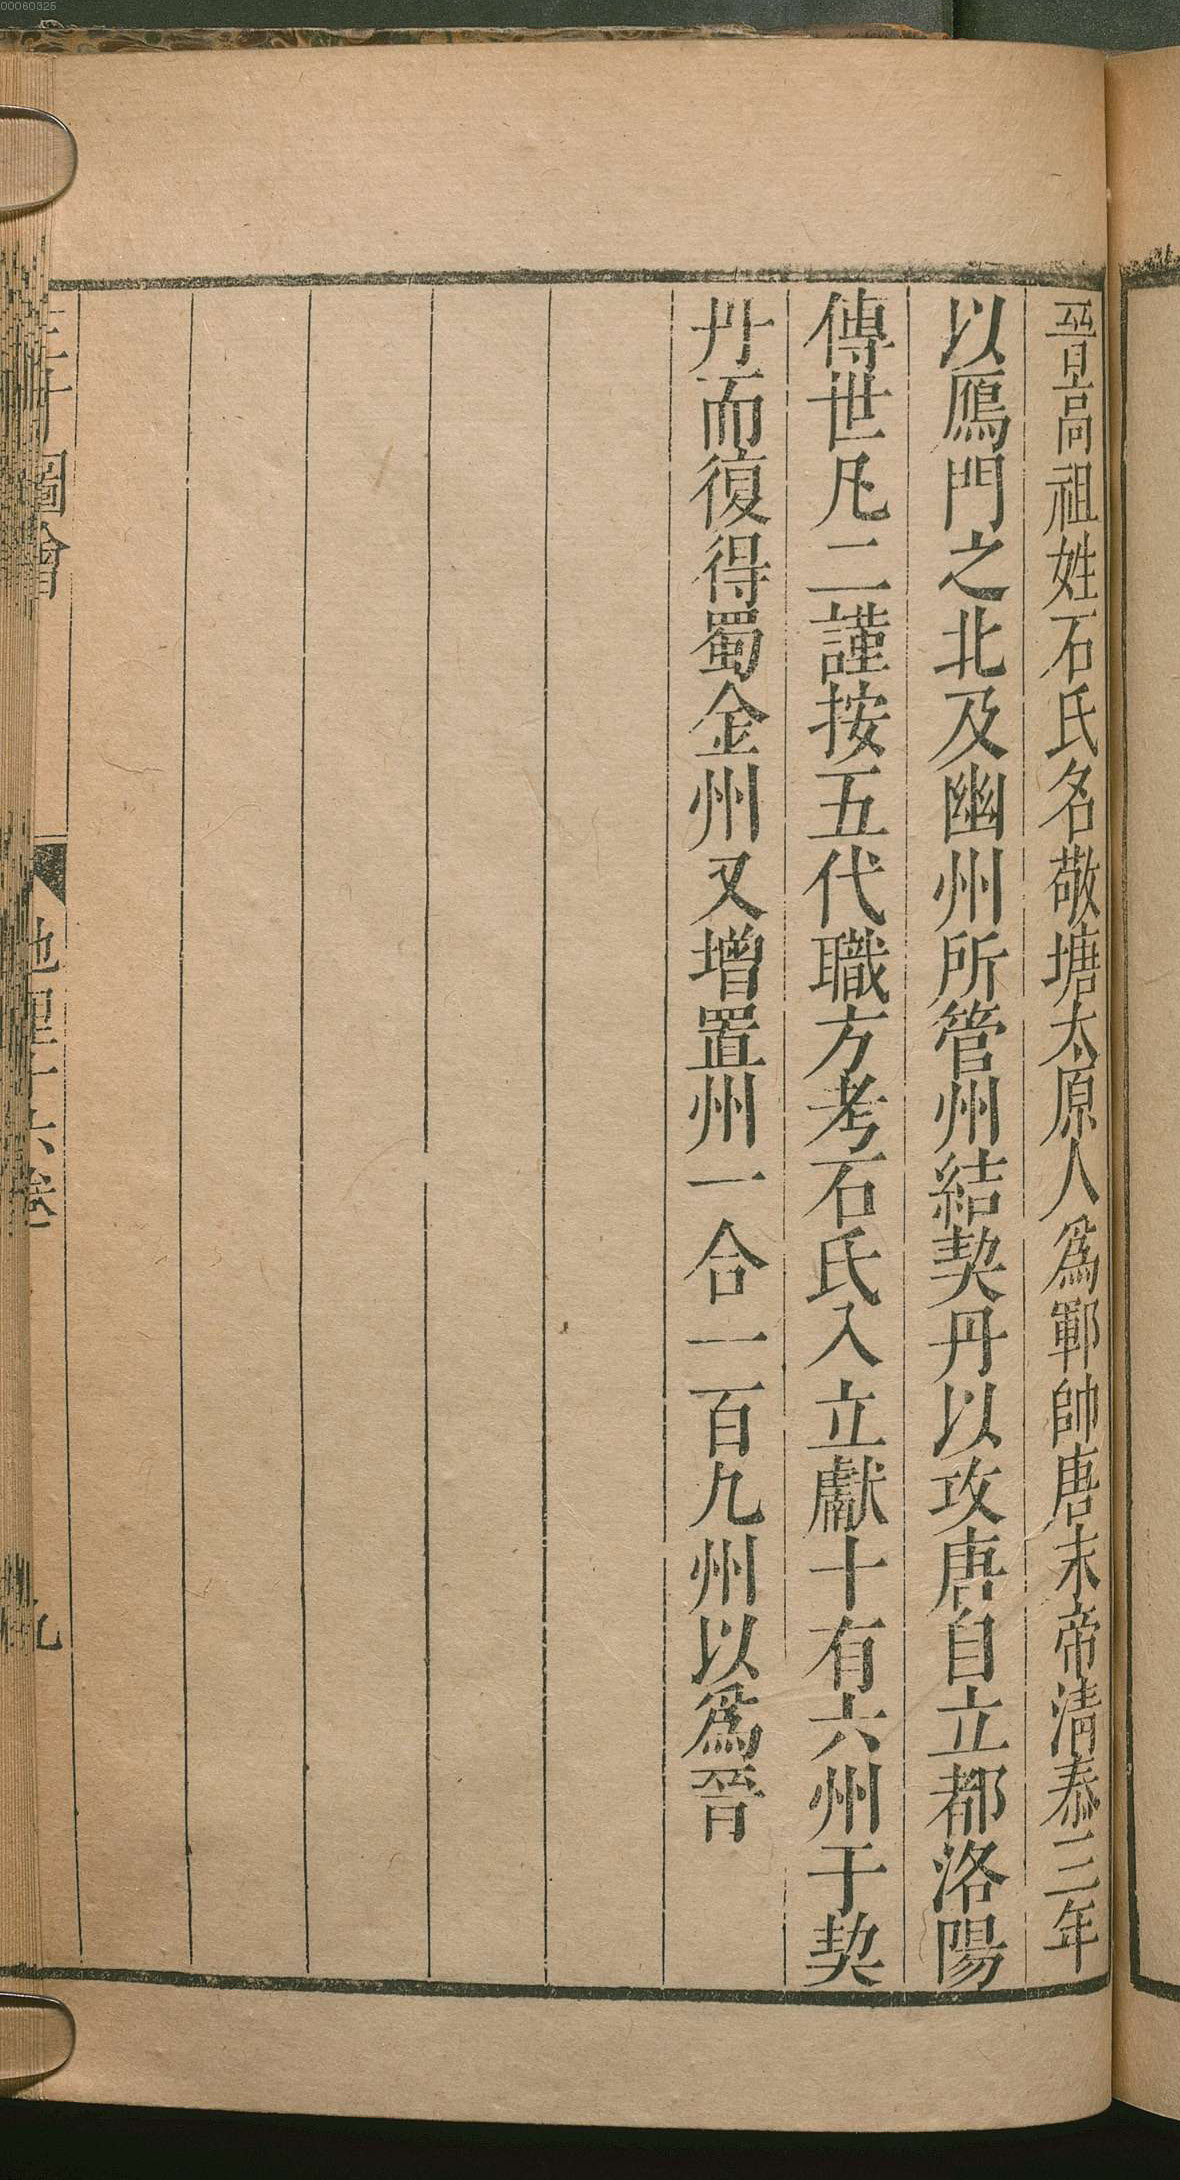 00060325
晉高祖姓石氏名敬塘太原人爲鄆帥唐末帝淸泰三年
以鴈門之北及幽州所管州結契丹以攻唐自立都洛陽
傳世凡二謹按五代職方考石氏入立獻十有六州于契
丹而復得蜀金州又增置州一合一百九州以爲晉
三才圖會
地理十六卷
九